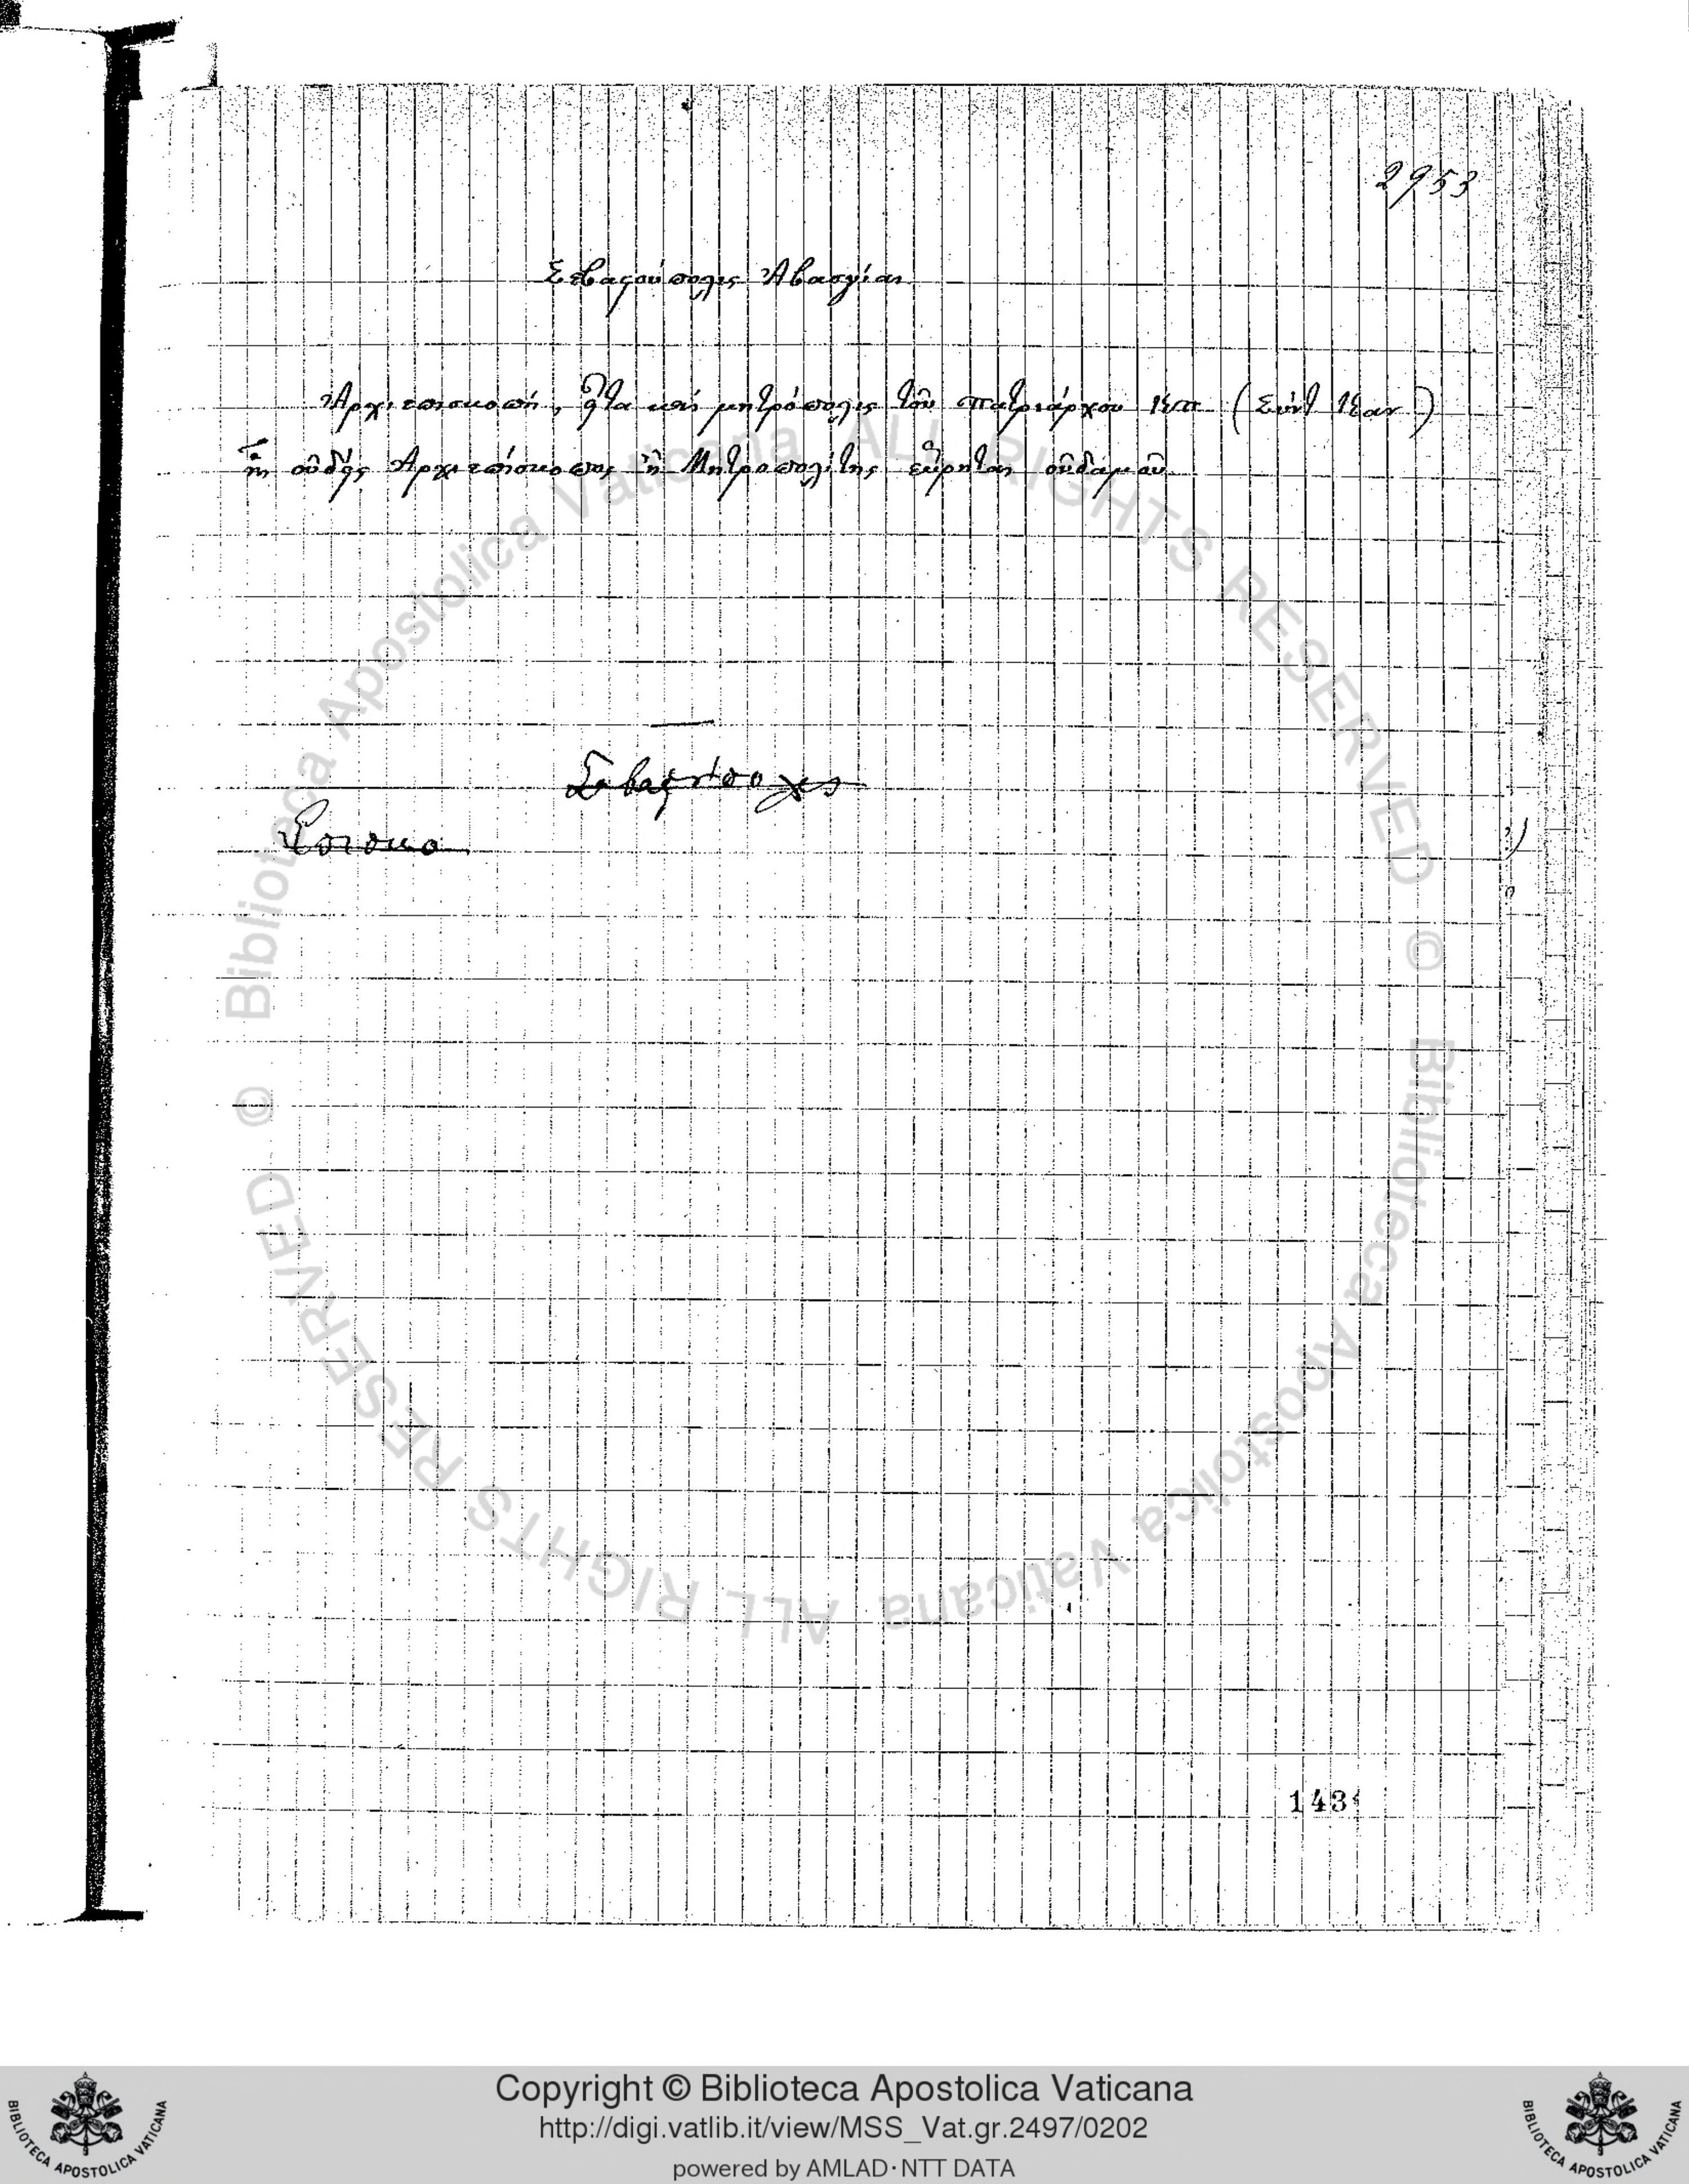 2953
Σεβαςούπολις Ἀβασγίας
Ἀρχιεπισκοπή, εἶτα καί μητρόπολις τοῦ πατριάρχου (Σύντ
ἧς οὐδείς Ἀρχιεπίσκοπος ἤ Μητροπολίτης εὕρηται οὐδαμοῦ
Σεβαςούπολις
1431
© Biblioteca Apostolica Vaticana ALL RIGHTS RESERVED © Biblioteca Apostolica Vaticana ALL RIGHTS RESERVED
Copyright © Biblioteca Apostolica Vaticana
http://digi.vatlib.it/view/MSS_Vat.gr.2497/0202
powered by AMLAD·NTT DATA
BIBLIOTECA APOSTOLICA VATICANA
BIBLIOTECA APOSTOLICA VATICANA